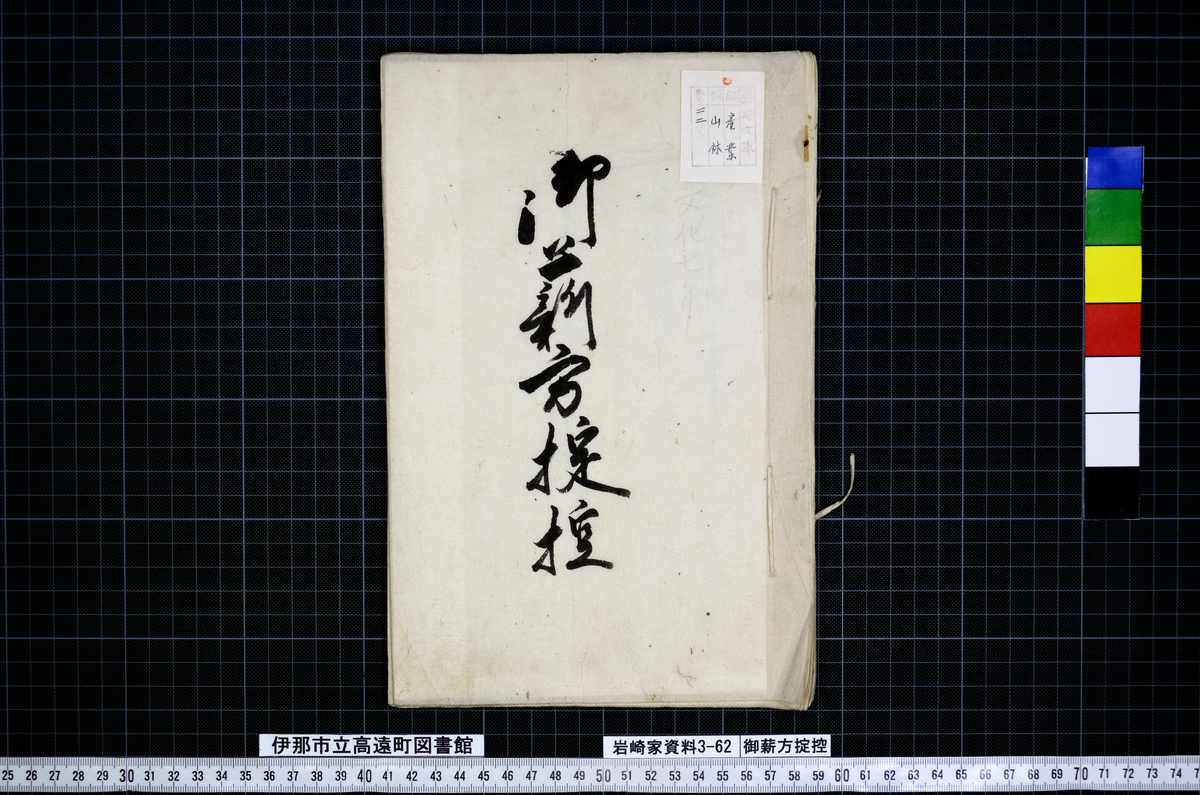 産業
山林
二二
文化七年
御薪方掟控
伊那市立高遠町図書館
岩崎家資料3-62
御薪方掟控
25 26 27 28 29 30 31 32 33 34 35 36 37 38 39 40 41 42 43 44 45 46 47 48 49 50 51 52 53 54 55 56 57 58 59 60 61 62 63 64 65 66 67 68 69 70 71 72 73 74